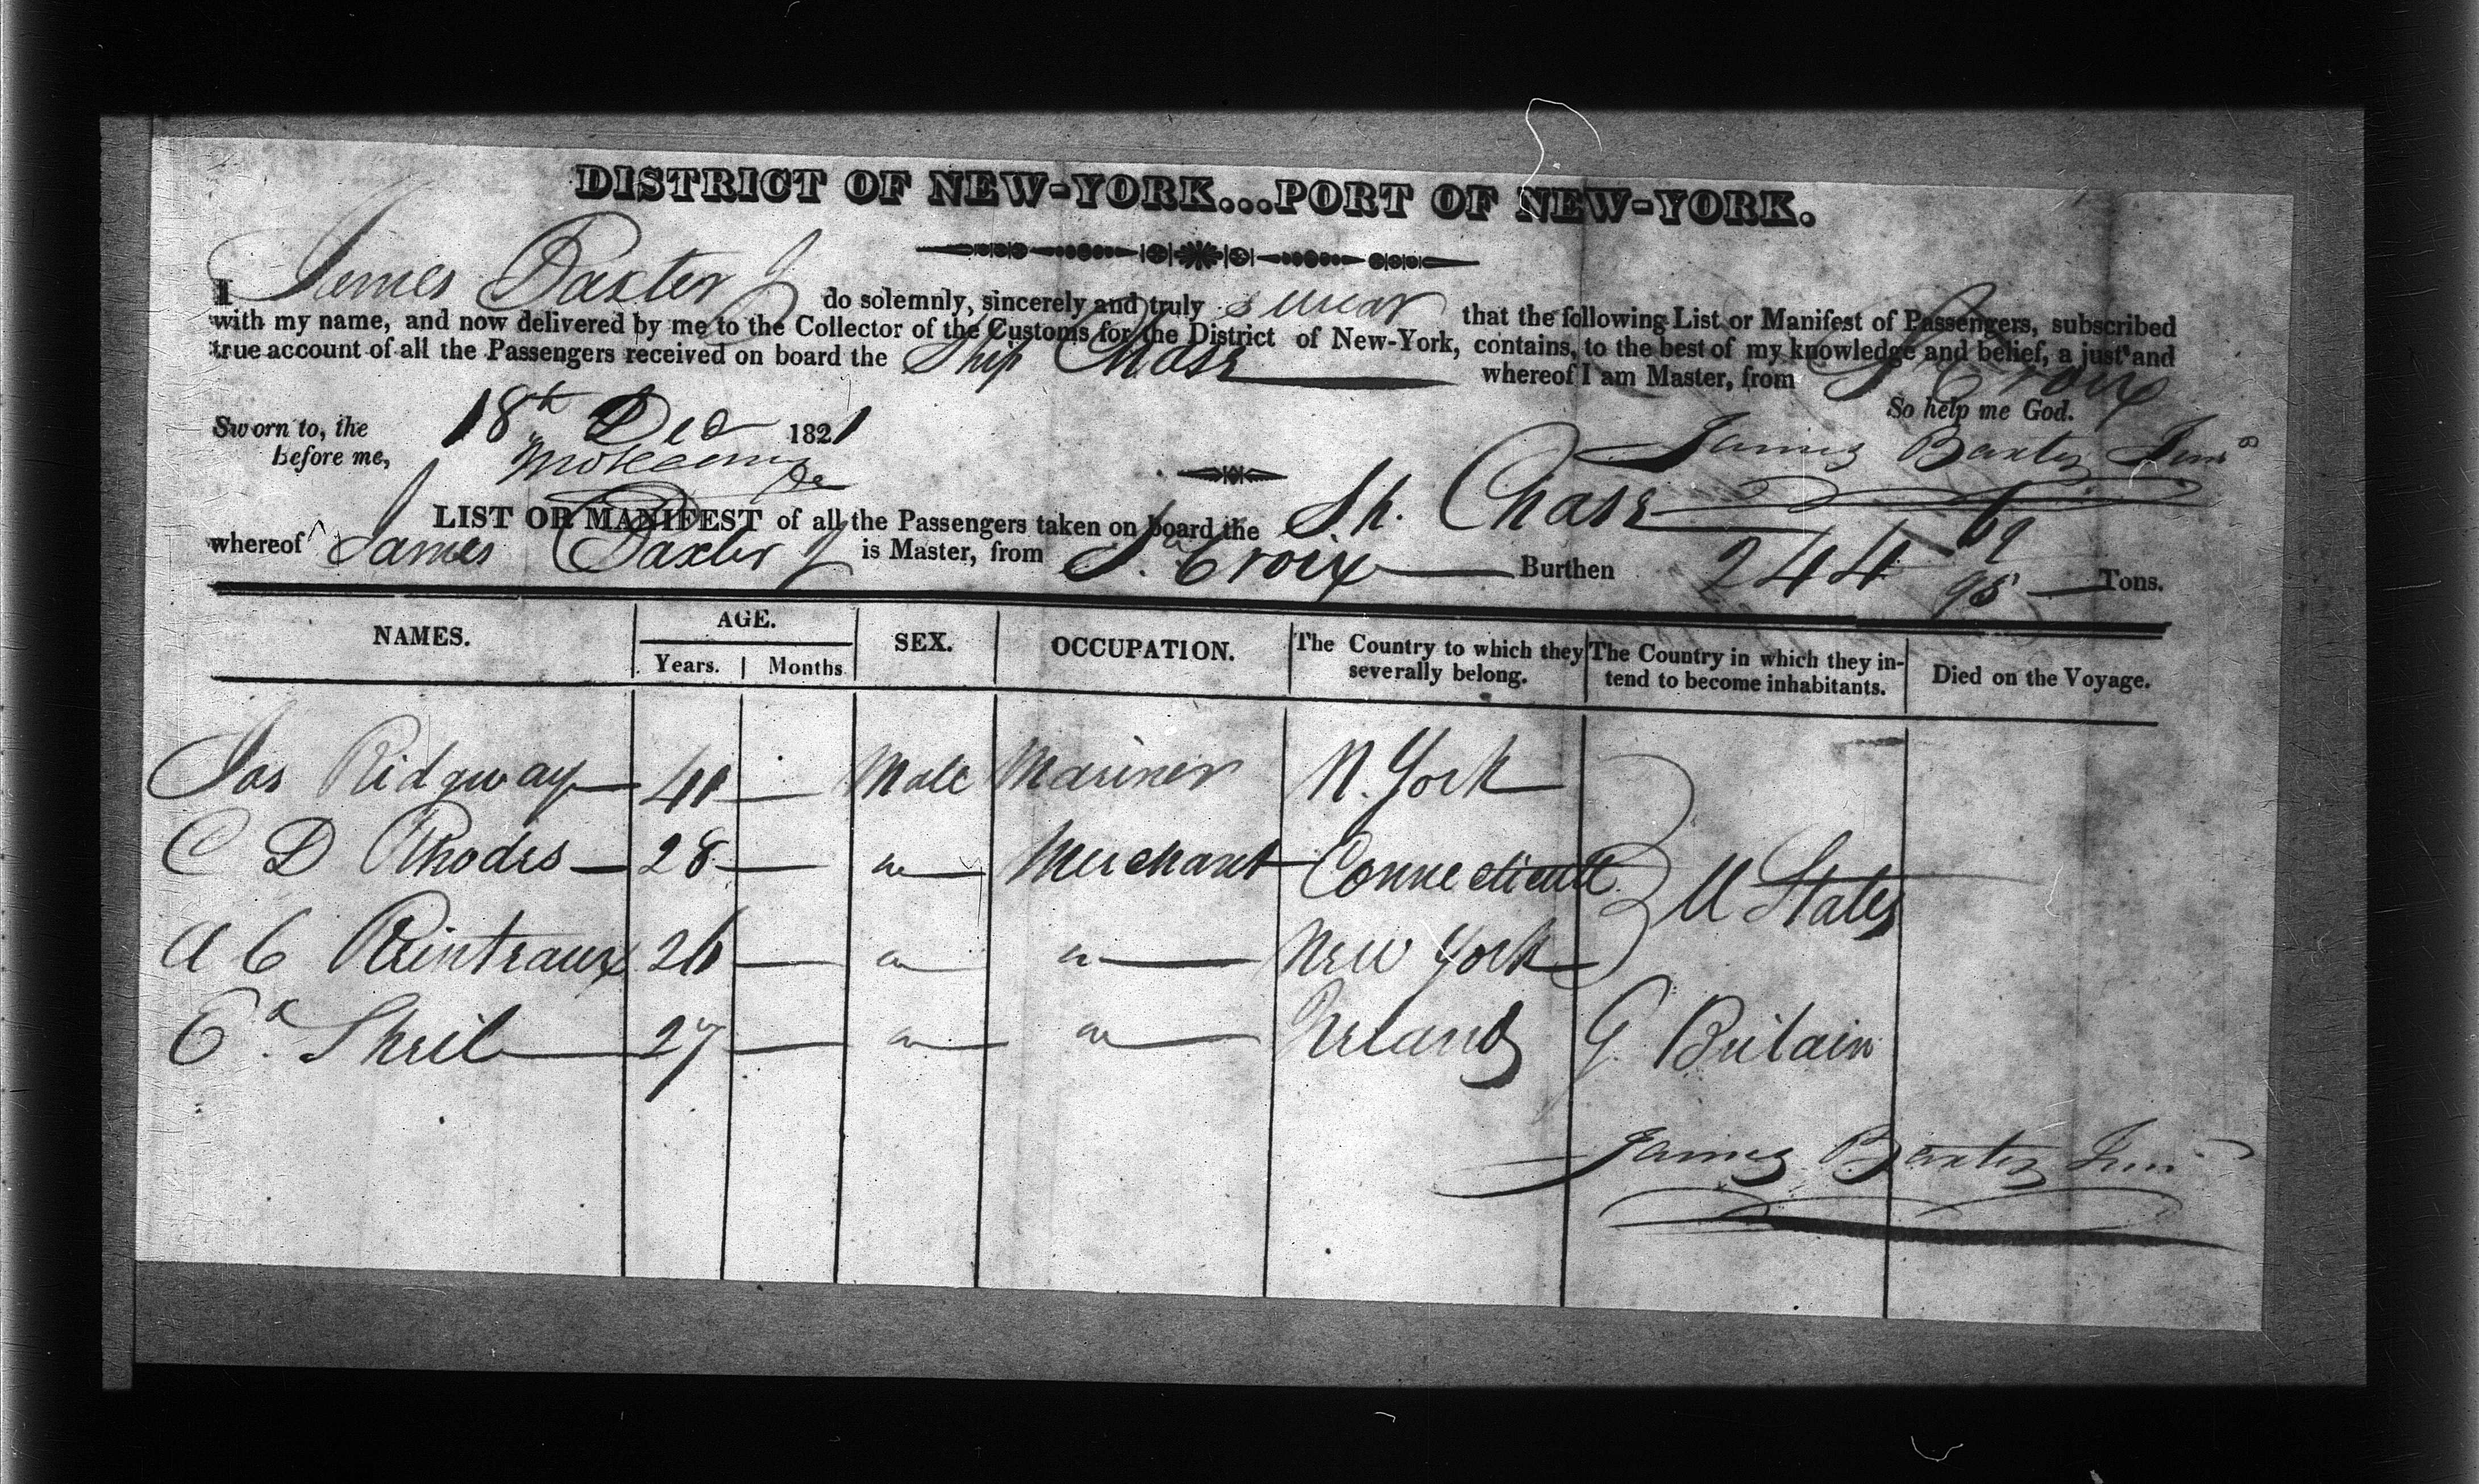 DISTRICT OF NEW-YORK...PORT OF NEW-YORK.
I James Baxter Jr do solemnly, sincerely and truly swear that the following List or Manifest of Passengers, subscribed
with my name, and now delivered by me to the Collector of the Customs for the District of New-York, contains, to the best of my knowledge and belief, a just and
true account of all the Passengers received on board the Ship Chase whereof I am Master, from St Croix
So help me God.
Sworn to, the 18th Dec 1821
before me,
James Baxter Junr
LIST OR MANIFEST of all the Passengers taken on board the Sh. Chase
whereof James Baxter Jr is Master, from St Croix Burthen 244 69/95 Tons.
NAMES. AGE. SEX. OCCUPATION. The Country to which they severally belong. The Country in which they intend to become inhabitants. Died on the Voyage.
Years. Months
Jas Ridgway 41 — Male Mariner N. York
C D Rhodes 28 — " Merchant Connecticutt U States
A C 26 — " " New York
Ed. Sheil 27 — " " Ireland G. Britain
James Baxter Junr